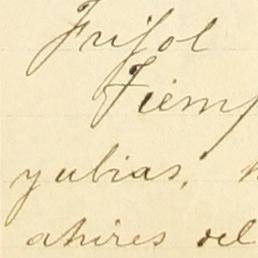 Frijol
Tiemp
yubias,
ahires del